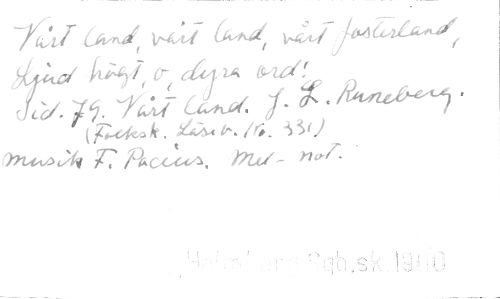 Vårt land, vårt land, vårt fosterland,
Ljud högt, o, dyra ord!
Sid. 79. Vårt land. J. L. Runeberg.
(Folksk. Läseb. No. 331)
musik F. Pacius. Med not.
sk. 1900